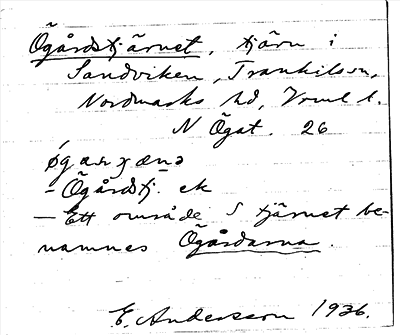 Ögårdstjärnet, tjärn i
Sandviken, Trankilsson,
Nordmarks hd, Vrml l.
N Ögat. 26
øgaʀʒænə
- Ögårdstj. ek
- Ett område S tjärnet be-
namnes Ögårdarna.
E. Andersson 1926.